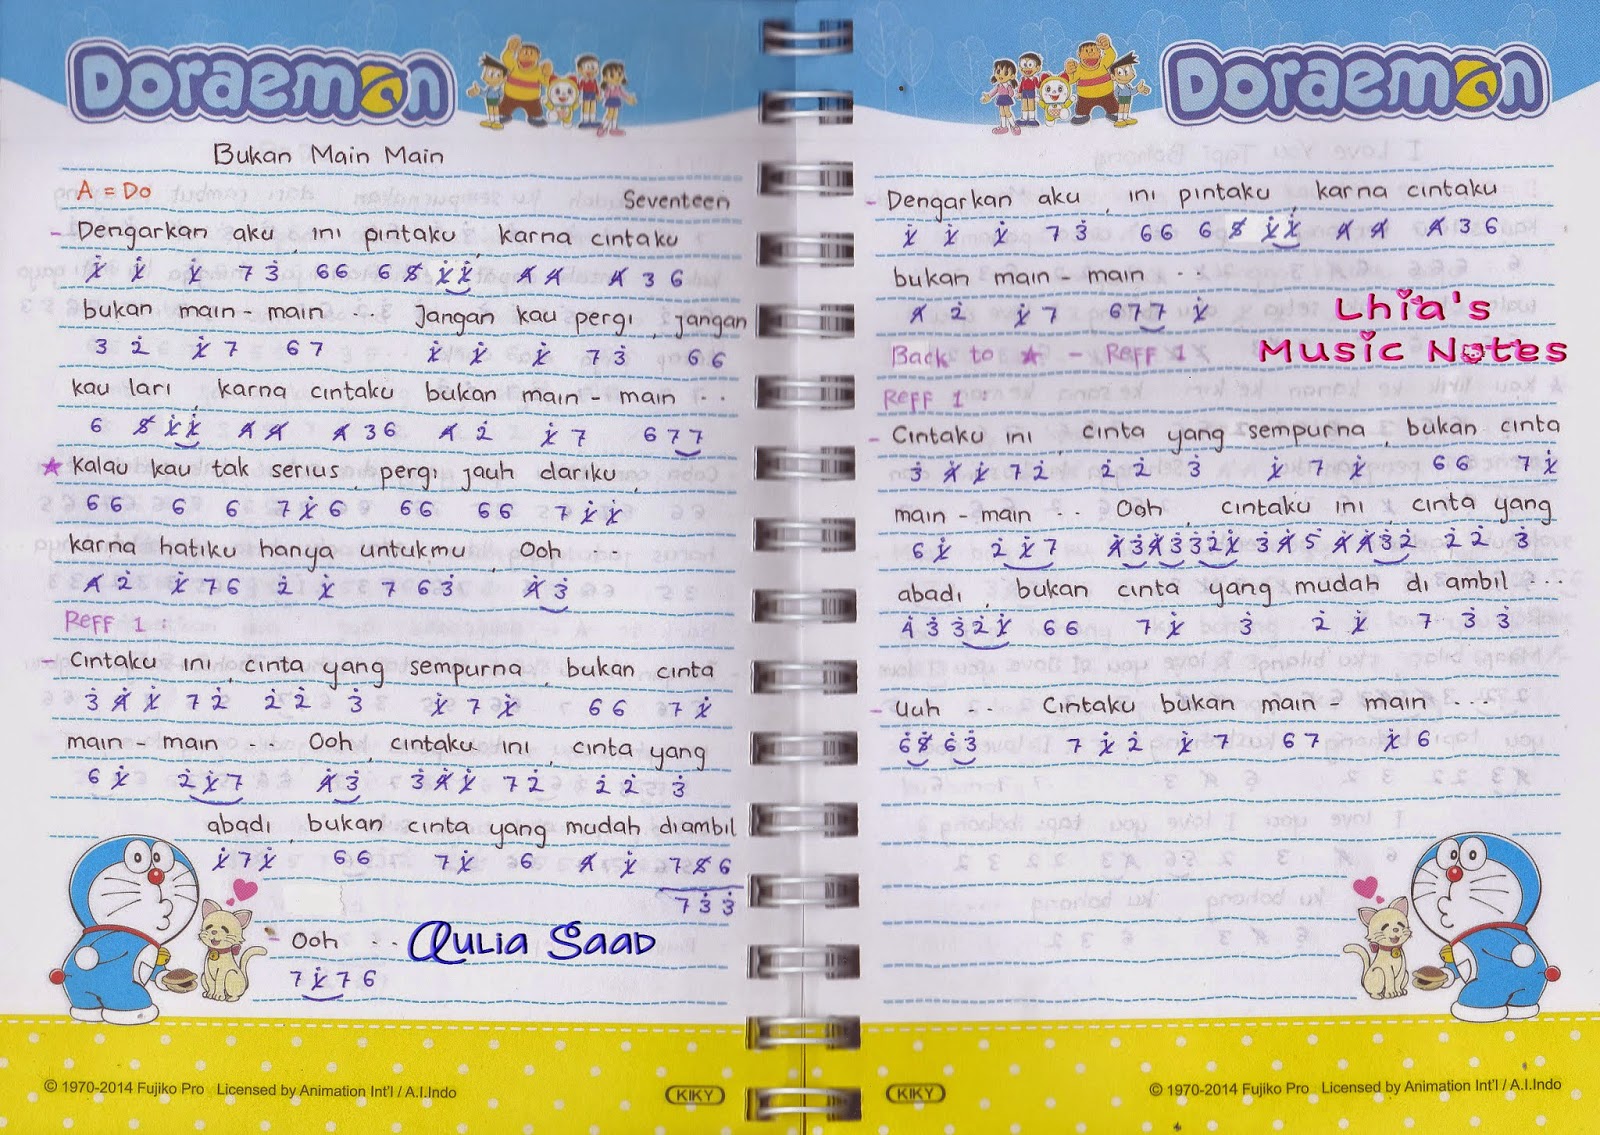 DORAEMON
Bukan Main Main
A = Do
Seventeen
- Dengarkan aku, ini pintaku, karna cintaku
1̸̇ 1̸̇ 1̸̇ 7 3̇ 6 6 6 5̸ 1̸̇ 1̸̇ 4̸ 4̸ 4̸ 3 6
bukan main - main .. Jangan kau pergi, jangan
3 2̇ 1̸̇ 7 6 7 1̸̇ 1̸̇ 1̸̇ 7 3̇ 6 6
kau lari, karna cintaku bukan main - main ..
6 5̸ 1̸̇ 1̸̇ 4̸ 4̸ 4̸ 3 6 4̸ 2̇ 1̸̇ 7 6 7 7
★ Kalau kau tak serius, pergi jauh dariku,
6 6 6 6 7 1̸̇ 6 6 6 6 6 7 1̸̇ 1̸̇
karna hatiku hanya untukmu, Ooh ...
4̸ 2̇ 1̸̇ 7 6 2̇ 1̸̇ 7 6 3̇ 4̸̇ 3̇
Reff 1 :
- Cintaku ini, cinta yang sempurna, bukan cinta
3̇ 4̸̇ 1̸̇ 7 2̇ 2̇ 2̇ 3̇ 1̸̇ 7 1̸̇ 6 6 7 1̸̇
main - main ... Ooh, cintaku ini, cinta yang
6 1̸̇ 2̇ 1̸̇ 7 4̸̇ 3̇ 3̇ 4̸̇ 1̸̇ 7 2̇ 2̇ 2̇ 3̇
abadi, bukan cinta yang mudah diambil
1̸̇ 7 1̸̇ 6 6 7 1̸̇ 6 4̸ 1̸̇ 7 5̸ 6
7 3̇ 3̇
- Ooh ...
7 1̸̇ 7 6
Aulia Saad
© 1970-2014 Fujiko Pro Licensed by Animation Int'l / A.I.Indo
KIKY
DORAEMON
- Dengarkan aku, ini pintaku, karna cintaku
1̸̇ 1̸̇ 1̸̇ 7 3̇ 6 6 6 5̸ 1̸̇ 1̸̇ 4̸ 4̸ 4̸ 3 6
bukan main - main ..
4̸ 2̇ 1̸̇ 7 6 7 7 1̸̇
Lhia's
Music Notes
Back to ★ - Reff 1
Reff 1 :
- Cintaku ini, cinta yang sempurna, bukan cinta
3̇ 4̸̇ 1̸̇ 7 2̇ 2̇ 2̇ 3̇ 1̸̇ 7 1̸̇ 6 6 7 1̸̇
main - main ... Ooh, cintaku ini, cinta yang
6 1̸̇ 2̇ 1̸̇ 7 4̸̇ 3̇ 4̸̇ 3̇ 3̇ 2̇ 1̸̇ 3̇ 4̸̇ 5̇ 4̸̇ 4̸̇ 3̇ 2̇ 2̇ 2̇ 3̇
abadi, bukan cinta yang mudah di ambil ...
4̸̇ 3̇ 3̇ 2̇ 1̸̇ 6 6 7 1̸̇ 3̇ 2̇ 1̸̇ 7 3̇ 3̇
- Uuh ... Cintaku bukan main - main ...
6 5̸̇ 6 3̇ 7 1̸̇ 2̇ 1̸̇ 7 6 7 1̸̇ 6
KIKY
© 1970-2014 Fujiko Pro Licensed by Animation Int'l / A.I.Indo